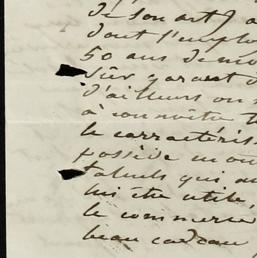 de son art
dont l'emplo
50 ans de
sûr garant d
d'ailleurs on
à connoitre
le carractéris
possède
talents qui
lui être utile,
le commerce
beau cadeau